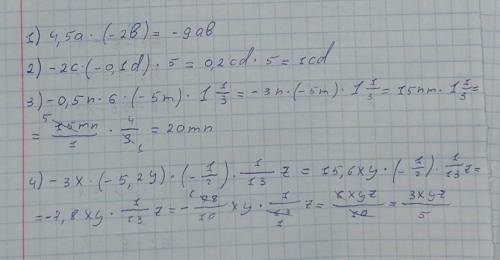 1) 4,5a · (-2b) = -9ab
2) -2c · (-0,1d) · 5 = 0,2cd · 5 = 1cd
3) -0,5n · 6 · (-5m) · 1 1/3 = -3n · (-5m) · 1 1/3 = 15nm · 1 1/3 =
= 15mn/1 · 4/3 = 20mn
4) -3x · (-5,2y) · (-1/2) · 1/13 z = 15,6xy · (-1/2) · 1/13 z =
= -7,8xy · 1/13 z = -78/10 xy · 1/13 z = 6xyz/10 = 3xyz/5